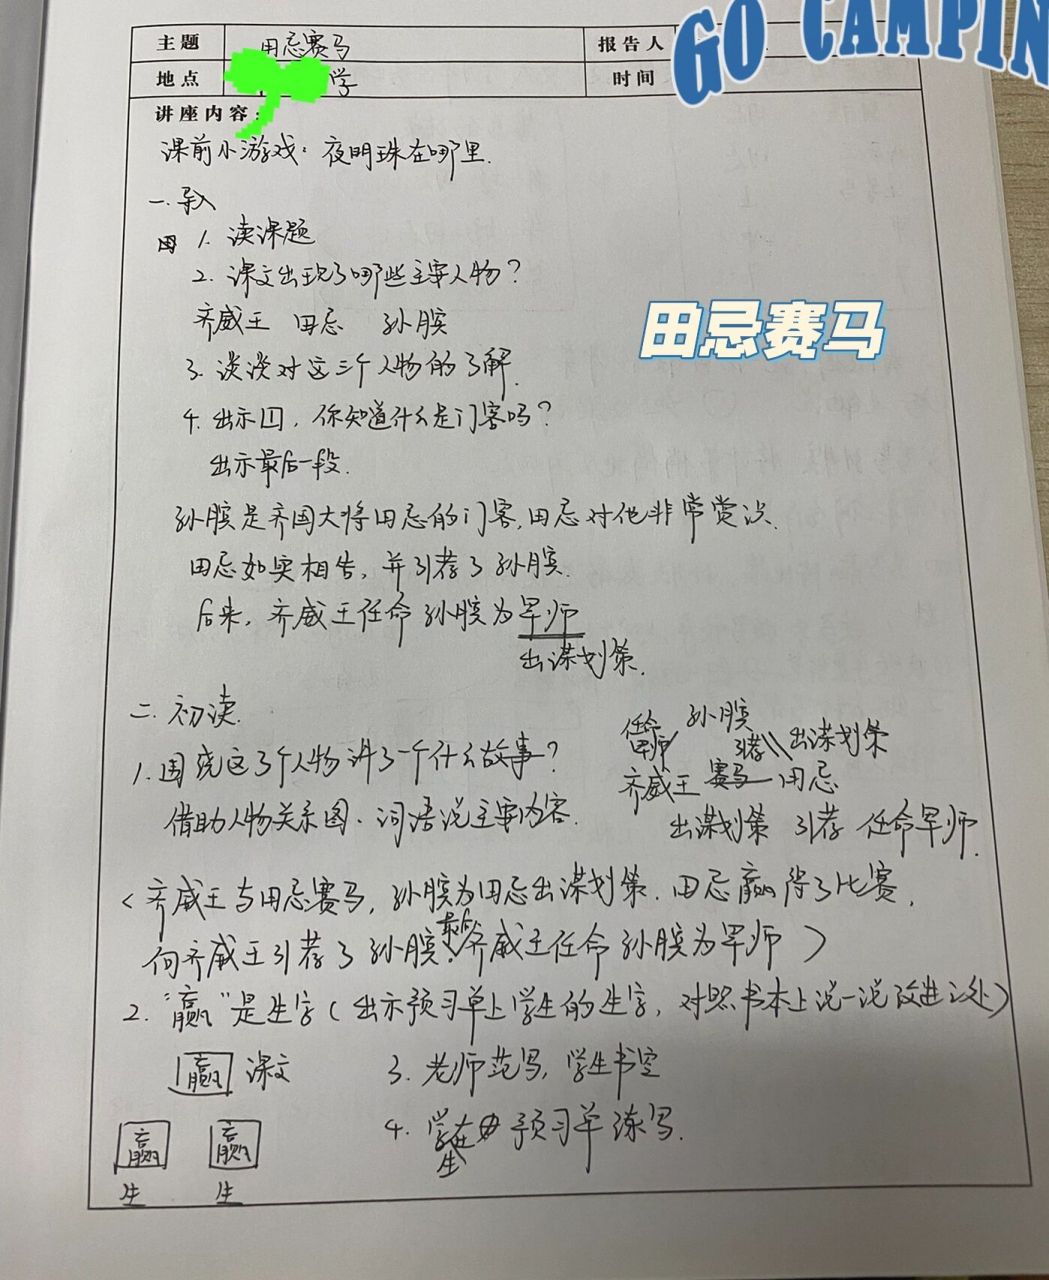 GO CAMPIN
主题 田忌赛马 报告人
地点 学 时间
讲座内容:
课前小游戏:夜明珠在哪里.
一.导入
1. 读课题
2. 课文出现了哪些主要人物?
田忌赛马
齐威王 田忌 孙膑
3. 谈谈对这三个人物的了解.
4. 出示四,你知道什么是门客吗?
出示最后一段.
孙膑是齐国大将田忌的门客,田忌对他非常赏识.
田忌如实相告,并引荐了孙膑.
后来,齐威王任命孙膑为军师
出谋划策.
二.初读.
1.围绕这3个人物讲了一个什么故事?
借助人物关系图、词语说主要内容.
任命军师 孙膑 引荐 出谋划策
齐威王 赛马 田忌
出谋划策 引荐 任命军师.
<齐威王与田忌赛马,孙膑为田忌出谋划策.田忌赢得了比赛,
向齐威王引荐了孙膑.最后齐威王任命孙膑为军师>
2.“赢”是生字(出示预习单上学生的生字,对照书本上说一说改进之处)
赢 课文 3. 老师范写,学生书空
4. 学生在预习单练写.
赢 赢
生 生